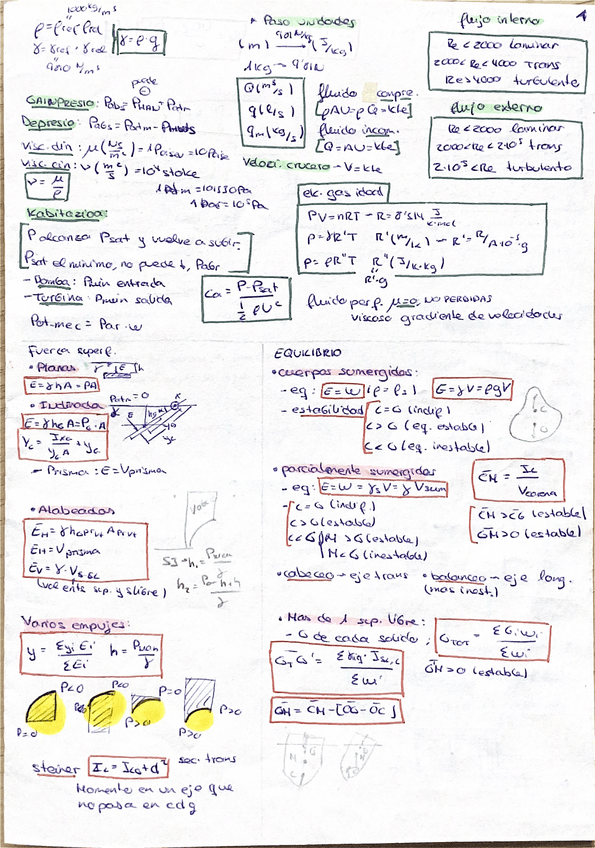 1000 kg/m³
ρ = ρrel ρref
γ = γrel · γref
9810 N/m³
γ = ρ · g
puede ⊖
GAINPRESIO: Pabs = Pman + Patm
Depresio: Pabs = Patm -
visc. din: μ (Ns/m²) = 1 Paiseu = 10 Poise
visc. cin: ν (m²/s) = 10⁴ stoke
ν = μ/ρ
1 Patm = 101330 Pa
1 bar = 10⁵ Pa
Kabitazioa:
P alcanza Psat y vuelve a subir.
Psat el minimo, no puede ↓, Pabs
- Bomba: Pmin entrada
- Turbina: Pmin salida
Ca = P - Psat / ½ ρ U²
Pot-mec = Par · w
* Paso unidades
(m) 9'81 N/kg → (J/kg)
1 kg → 9'81 N
Q (m³/s)
q (l/s)
qm (kg/s)
fluido compre.
[ρAU = ρ Q = kte]
fluido incom.
[AU = Q = kte]
Velozi. crucero - V = kte
ek. gas idad
PV = nRT - R = 8'314 J/K·mol
P = γR'T R' (m/K) - R' = R/A·10⁻³·g
P = ρR"T R" (J/K·kg)
R'·g
fluido perf. μ=0, NO PERDIDAS
viscoso gradiente de velocidades
flujo interno
Re < 2000 laminar
2000 < Re < 4000 trans
Re > 4000 turbulente
flujo externo
Re < 2000 laminar
2000 < Re < 2·10⁵ trans
2·10⁵ < Re turbulento
Fuerza superf.
• Planas
E = γhA = PA
• Inclinada
Patm = 0
E = γ hG A = PG · A
yc = IxG / yG A + yG
- Prisma: E = Vprisma
• Alabeadas
EH = γ hGprvt Aprvt
EH = Vprisma
EV = γ · VS-SL
(vol entre sup. y s libre)
SI → h₁ = Pman/γ
Varios empujes:
y = Σyi Ei / ΣEi h = Pman/γ
P<0
P<0
P=0
P=0
P>0
P>0
P>0
steiner Ic = IcG + d² sec. trans
Momento en un eje que
no pasa en cdg
EQUILIBRIO
• cuerpos sumergidos:
- eq: E = W (ρ = ρs) E = γ V = ρgV
- estabilidad C = G (indif)
C > G (eq. estable)
C < G (eq. inestable)
• parcialmente sumergidos
- eq: E = W = γs V = γ Vsum
- C = G (indif)
C > G (estable)
C < G M > G (estable)
M < G (inestable)
CM = Ic / Vcarena
CM > CG (estable)
GM > 0 (estable)
• cabeceo - eje trans • balanceo - eje long.
(mas inest.)
• Mas de 1 sup. libre:
- G de cada solido; GTOT = ΣGi wi / Σwi
GT G' = Σγliq · ISL,G / Σwi
GM > 0 (estable)
GM = CM - [OG - OC]